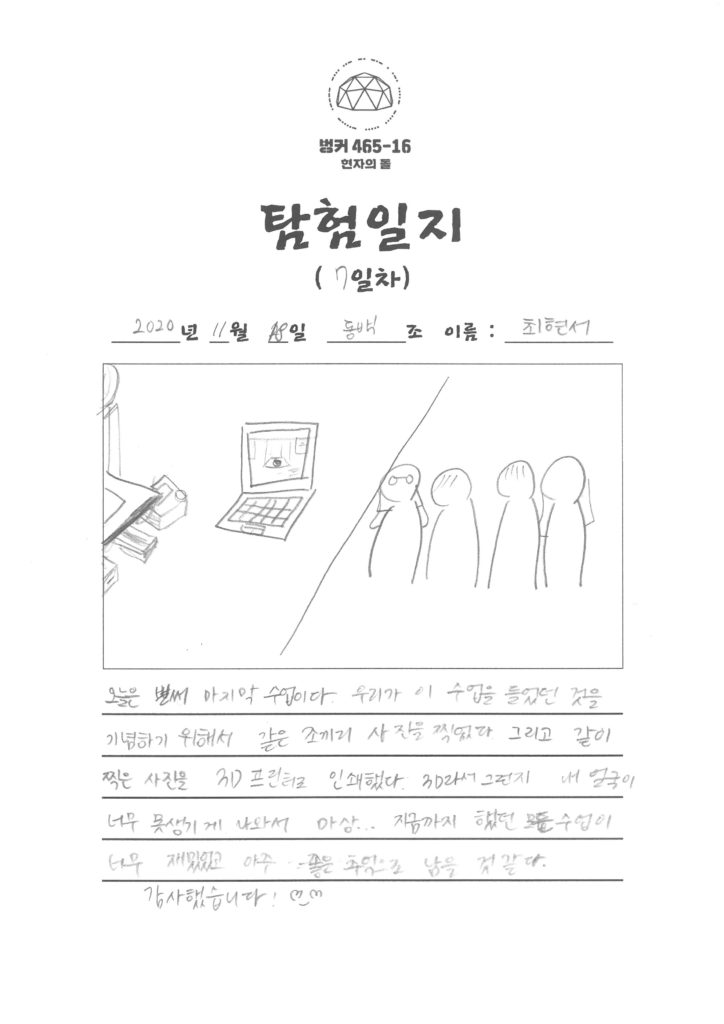 벙커 465-16
현자의 돌
탐험일지
( 7일차)
2020년 11월 18일 동백 조 이름 : 최현서
오늘은 벌써 마지막 수업이다. 우리가 이 수업을 들었던 것을
기념하기 위해서 같은 조끼리 사진을 찍었다 그리고 같이
찍은 사진을 3D 프린터로 인쇄했다. 3D라서 그런지 내 얼굴이
너무 못생기게 나와서 마상... 지금까지 했던 모든 수업이
너무 재밌었고 아주 좋은 추억으로 남을 것 같다.
감사했습니다!